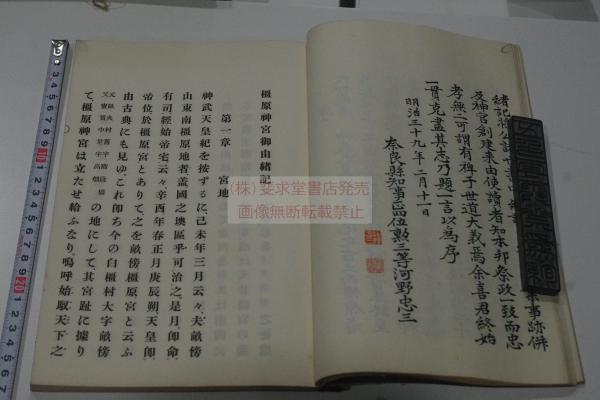 緒記
及神宮創建来由使讀者知本邦祭政一致而忠
孝無二可謂有裨于世道大義焉余喜君終始
一貫克盡其志乃題一言以為序
明治三十九年二月十一日
奈良縣知事正四位勲三等河野忠三
橿原神宮御由緒記
第一章 宮地
神武天皇紀を按ずるに、己未年三月云々、夫畝傍
山東南橿原地者蓋國之墺區乎可治之、是月、即命
有司經始帝宅云々、辛酉年春正月庚辰朔、天皇即
帝位於橿原宮とありて、之を畝傍橿原宮と云ふ
由古典にも見ゆ、これ即ち今の白橿村大字畝傍
の地にして其宮趾に據り
て橿原神宮は立たせ給ふなり、嗚呼始馭天下之
(株)斐求堂書店発売
画像無断転載禁止